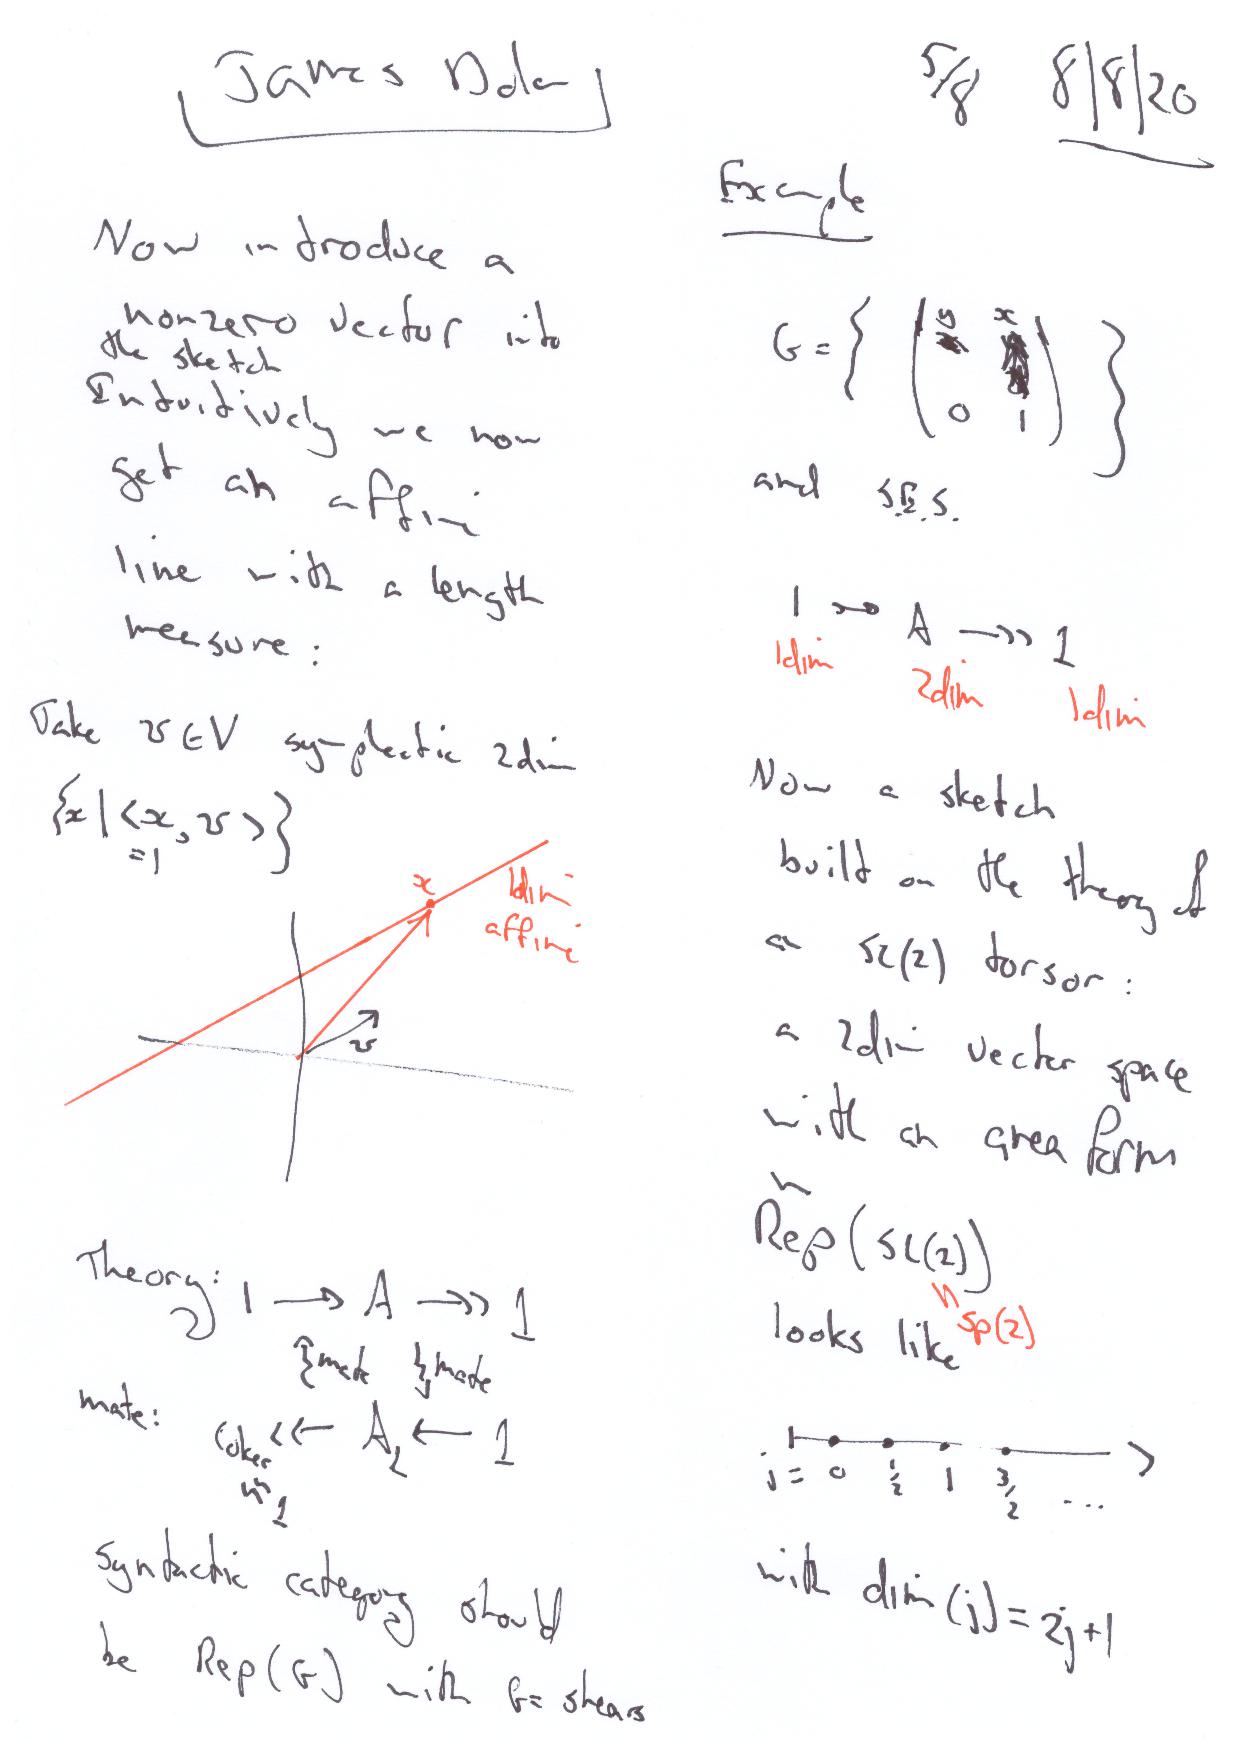 James Dolan
5/8 8/8/20
Now introduce a
nonzero vector into
the sketch
Intuitively we now
get an affine
line with a length
measure:
Take v ∈ V symplectic 2dim
{x | <x, v> }
=1
x
1dim
affine
v
Theory: 1 → A ↠ 1
mate mate
mate: Coker ↞ A ← 1
≅ 1
Syntactic category should
be Rep(G) with G = shears
Example
G = { ( y x
0 1 ) }
and S.E.S.
1 ↣ A ↠ 1
1dim 2dim 1dim
Now a sketch
built on the theory of
an SL(2) torsor:
a 2dim vector space
with an area form
Rep(SL(2))
Sp(2)
looks like
j = 0 1/2 1 3/2 ...
with dim(j) = 2j+1